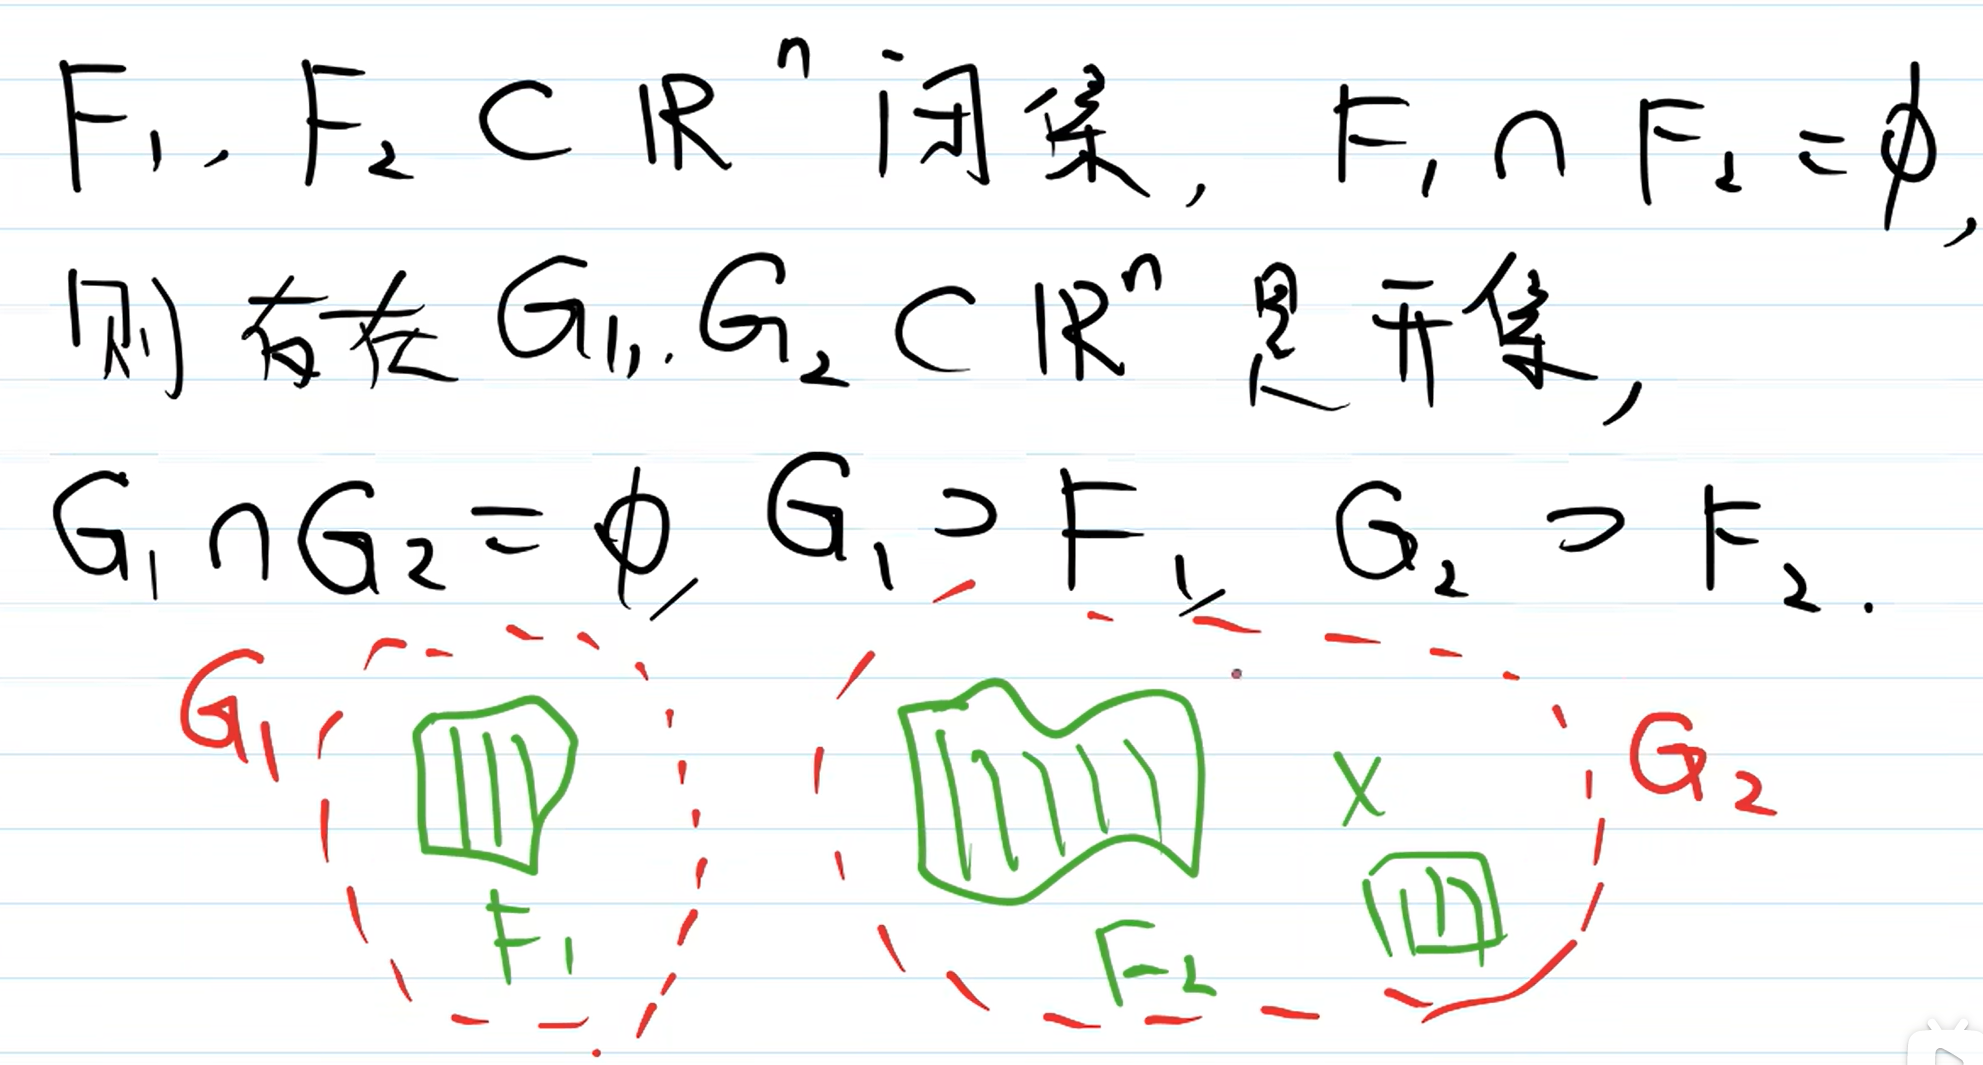 F₁, F₂ ⊂ ℝⁿ 闭集, F₁ ∩ F₂ = ϕ,
则存在 G₁, G₂ ⊂ ℝⁿ 是开集,
G₁ ∩ G₂ = ϕ, G₁ ⊃ F₁, G₂ ⊃ F₂.
G₁
G₂
X
F₁
F₂